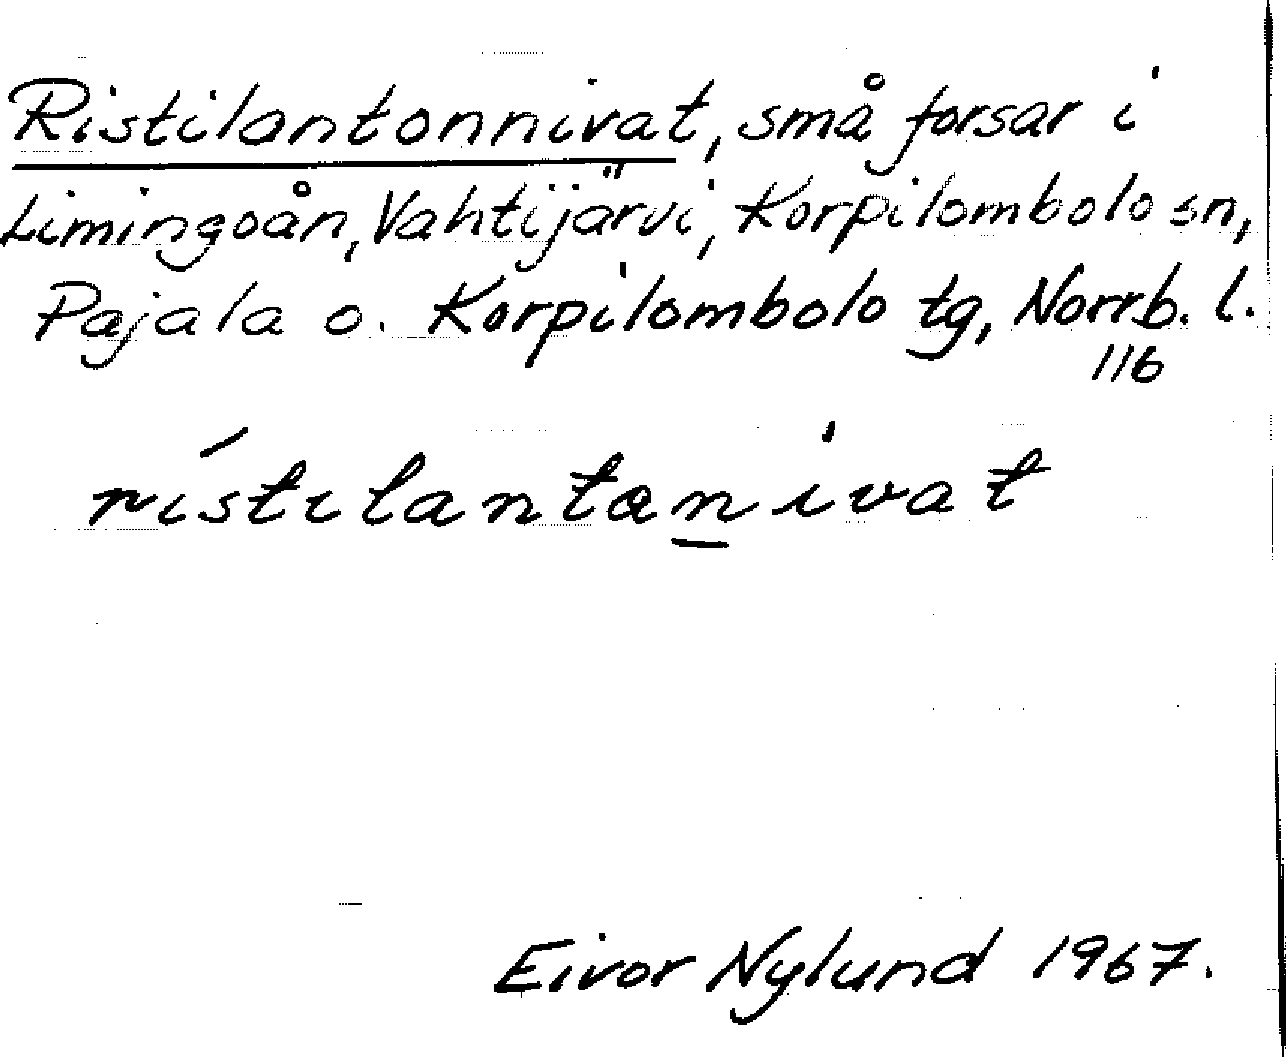 Ristilantonnivat, små forsar i
Limingoån, Vahtijärvi, Korpilombolo sn,
Pajala o. Korpilombolo tg, Norrb. l.
116
rístilantaṉivat
Eivor Nylund 1967.